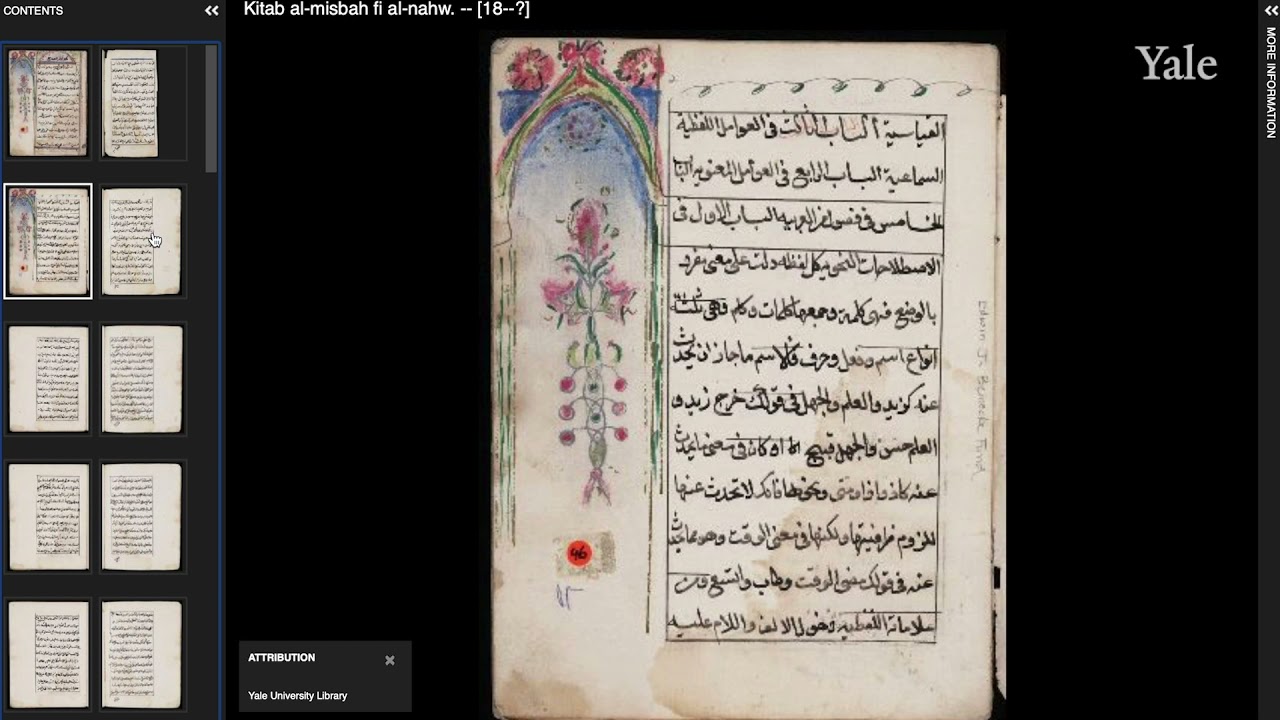 CONTENTS
Kitab al-misbah fi al-nahw. -- [18--?]
Yale
MORE INFORMATION
القياسية الباب الثالث فى العوامل اللفظية
السماعية الباب الرابع فى العوامل المعنوية البا
الخامس فى فصول من العربيه الباب الاول فى
الاصطلاحات النحويه كل لفظه دلت على معنى مفرد
بالوضع فهى كلمة وجمعها كلمات وكلم وهى ثلثة
انواع اسم وفعل وحرف فالاسم ما جاز ان يحدث
عنه كزيد والعلم والجهل فى قولك خرج زيد و
العلم حسن والجهل قبيح او كان فى معنى ما يحدث
عنه كاذ واذا ومتى ونحوها فانك لا تحدث عنها
للزوم ظرفيتها ولكنها فى معنى الوقت وهو مما يحدث
عنه فى قولك مضى الوقت وطاب واتسع ومن
علاماته اللفظيه دخول الالف واللام عليه
Edwin J. Beinecke Fund
46
ATTRIBUTION
Yale University Library